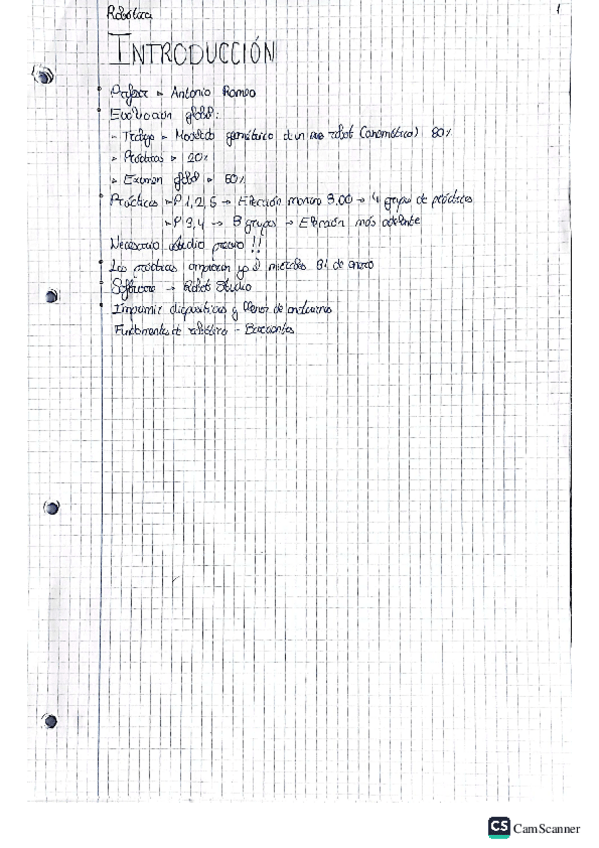 Robótica
1
INTRODUCCIÓN
• Profesor → Antonio Romeo
• Evaluación global:
- Trabajo → Modelado geométrico de un robot (cinemático) 30%
→ Prácticas → 20%
→ Examen global → 50%
Prácticas → P 1, 2, 5 → Elección 9.00 → 4 grupos de prácticas
→ P 3, 4 → 8 grupos → Elección más adelante
Necesario estudio previo!!
• Las prácticas empiezan ya miércoles 31 de enero
• Software → Robot Studio
• Imprimir diapositivas y de
Fundamentos de robótica - Barrientos
CS CamScanner